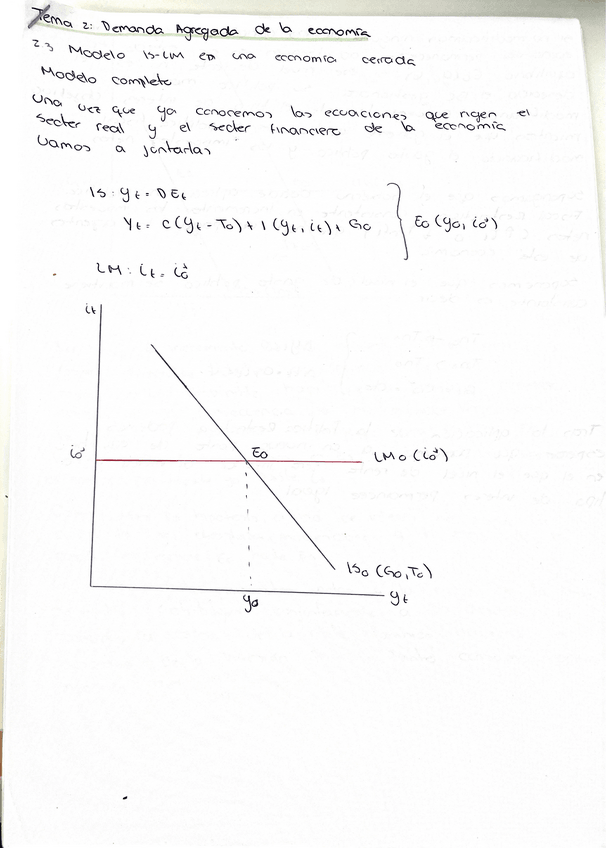 Tema 2: Demanda Agregada de la economía
2.3 Modelo IS-LM en una economía cerrada
Modelo completo
Una vez que ya conocemos las ecuaciones que rigen el
sector real y el sector financiero de la economía
Vamos a juntarlas
IS: yt = DEt
Yt = C(yt - T0) + I(yt, it) + G0
E0 (y0, i0^s)
LM: it = i0^s
it
i0^s
E0
LM0 (i0^s)
IS0 (G0, T0)
y0
yt